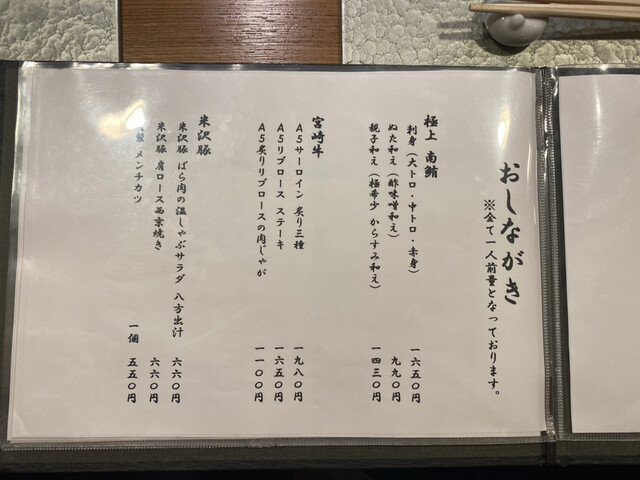 おしながき
※全て一人前量となっております。
極上 南鮪
刺身（大トロ・中トロ・赤身） 一六五〇円
ぬた和え（酢味噌和え） 九九〇円
親子和え（極希少 からすみ和え） 一四三〇円
宮崎牛
A5サーロイン 炙り三種 一九八〇円
A5リブロース ステーキ 一六五〇円
A5炙りリブロースの肉じゃが 一一〇〇円
米沢豚
米沢豚 ばら肉の温しゃぶサラダ 八方出汁 六六〇円
米沢豚 肩ロース西京焼き 六六〇円
メンチカツ 一個 五五〇円